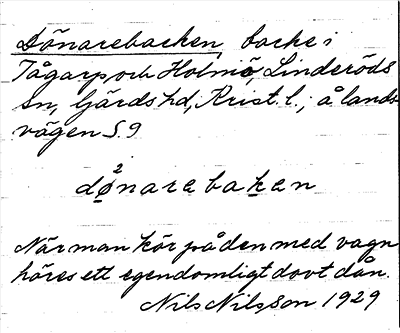 Dånarebacken, backe i
Tågarp och Holmö, Linderöds
sn, Gärds hd, Krist. l.; å lands-
vägen S. 9
2
dønarebaken
När man kör på den med vagn
höres ett egendomligt dovt dån.
Nils Nilsson 1929